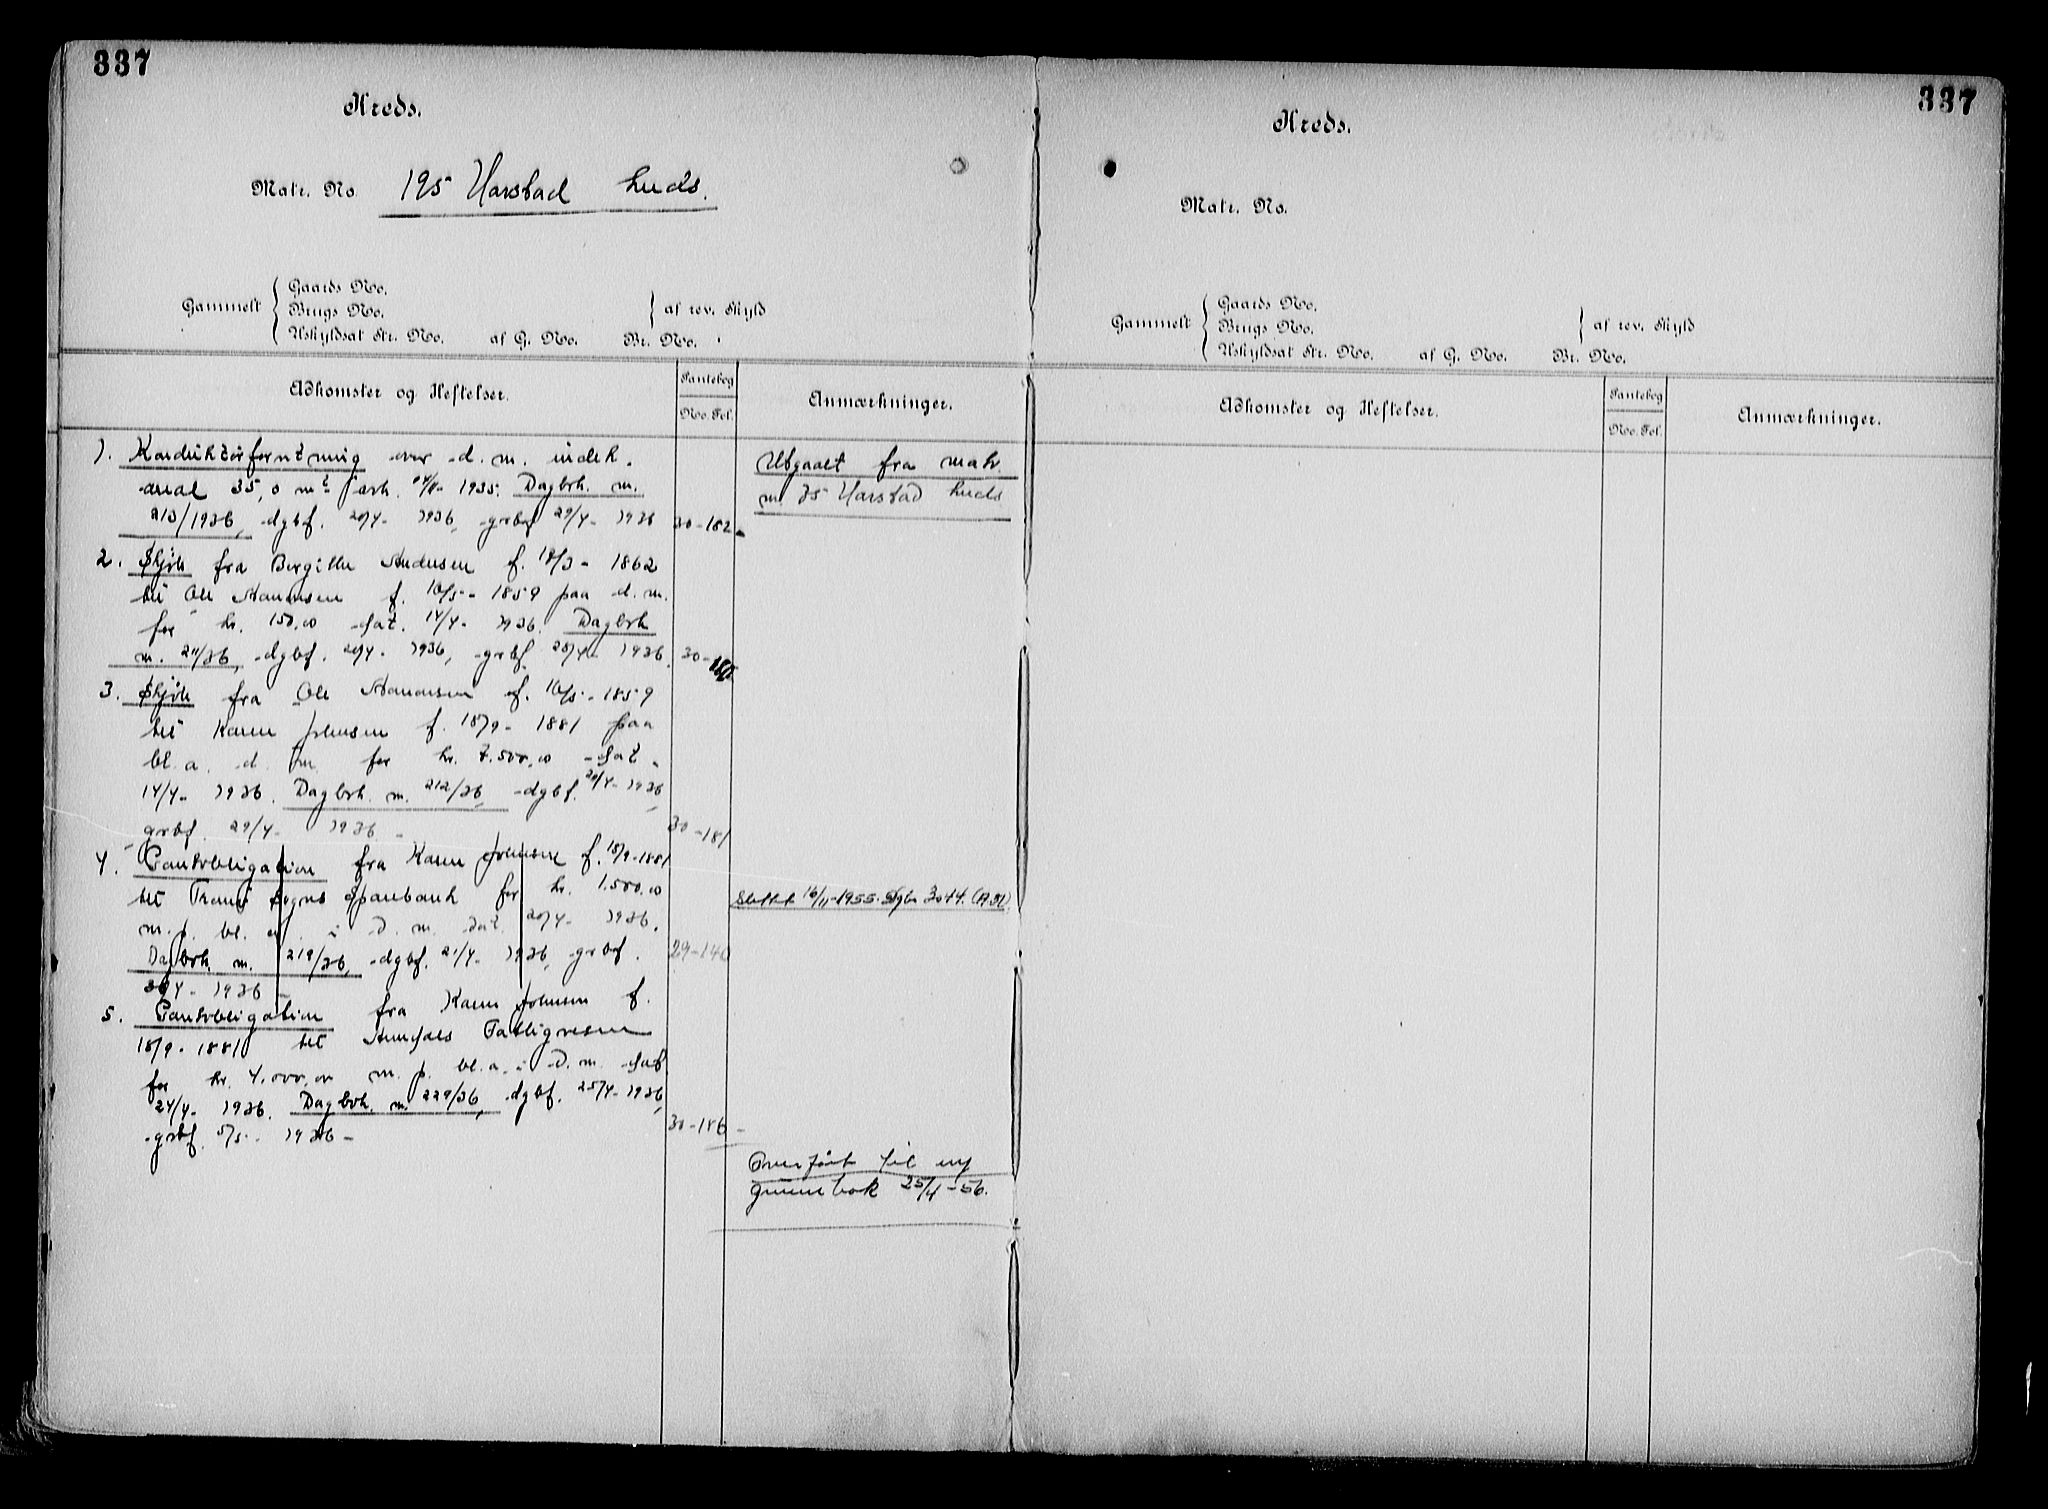 337
Kreds.
Matr. No. 195 Harstad
Gammelt { Gaards No.
Brugs No.
Uskyldsat Str. No. af G. No. Br. No.
} af rev. Skyld
Adkomster og Heftelser.
Pantebog
No. Fol.
Anmærkninger.
1. Konduktørforretning over d. m. indeh.
areal 35,0 m² 1935. Dagbok. nr.
213/1936, dgbf. 20/4- 1936, grbf 29/4- 1936 30-182
Utgaaet fra matr.
nr. 35 Harstad
2. Skjøte fra Bergitte Andersen f. 19/3- 1862
til Ole f. 16/5- 1859 paa d. nr.
for kr. 150,00 dat. 14/4- 1936. Dagbok
nr. 211/36, dgbf. 20/4- 1936, grbf. 28/4- 1936. 30-
3. Skjøte fra Ole f. 16/5- 1859
til Karen Johnsen f. 18/9- 1881 paa
bl. a. d. nr. for kr. 7.500,00 dat.
14/4- 1936. Dagbok. nr. 212/36, dgbf. 20/4- 1936,
grbf. 29/4- 1936 - 30-181
4. Pantobligation fra Karen Johnsen f. 18/9- 1881
til Sogns Sparebank for kr. 1.500,00
m. p. bl. a. i d. nr. dat. 20/4- 1936.
Dagbok. nr. 219/36, dgbf. 21/4- 1936, grbf. 29-140
30/4- 1936 -
Slettet 16/11-1955. Dgb. 3044.
5. Pantobligation fra Karen Johnsen f.
18/9- 1881 til Fattigvesen
for kr. 4.000,00 m. p. bl. a. i d. nr. dat
24/4- 1936. Dagbok. nr. 229/36, dgbf. 25/4- 1936,
grbf. 5/5- 1936 - 30-186
Overført til ny
grunnbok 25/4-56.
337
Kreds.
Matr. No.
Gammelt { Gaards No.
Brugs No.
Uskyldsat Str. No. af G. No. Br. No.
} af rev. Skyld
Adkomster og Heftelser.
Pantebog
No. Fol.
Anmærkninger.